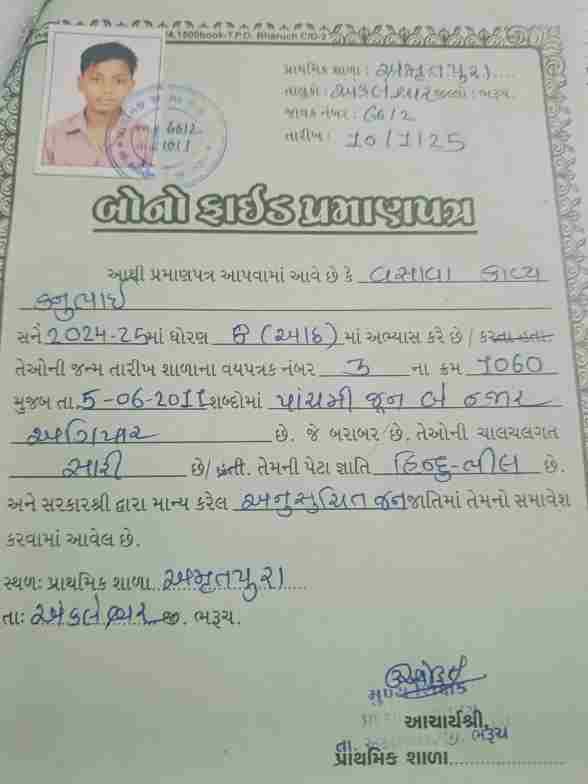 1500book-T.P.D. Bharuch C/D-2
પ્રાથમિક શાળા : અમૃતપુરા
તાલુકો : અંકલેશ્વર જીલ્લો : ભરૂચ.
જાવક નંબર : 66/2
તારીખ : 10/1/25
66/2
10/1
બોનોફાઈડ પ્રમાણપત્ર
આથી પ્રમાણપત્ર આપવામાં આવે છે કે વસાવા કાવ્ય
કનુભાઈ
સને 2024-25માં ધોરણ 8 (આઠ) માં અભ્યાસ કરે છે / કરતા હતા
તેઓની જન્મ તારીખ શાળાના વયપત્રક નંબર 3 ના ક્રમ 1060
મુજબ તા. 5-06-2011 શબ્દોમાં પાંચમી જૂન બે હજાર
અગિયાર છે. જે બરાબર છે. તેઓની ચાલચલગત
સારી છે/ હતી. તેમની પેટા જ્ઞાતિ હિન્દુ-ભીલ છે.
અને સરકારશ્રી દ્વારા માન્ય કરેલ અનુસુચિત જનજાતિમાં તેમનો સમાવેશ
કરવામાં આવેલ છે.
સ્થળ: પ્રાથમિક શાળા અમૃતપુરા
તા: અંકલેશ્વર જી. ભરૂચ.
મુખ્ય શિક્ષક
આચાર્યશ્રી,
તા. જી. ભરૂચ
પ્રાથમિક શાળા